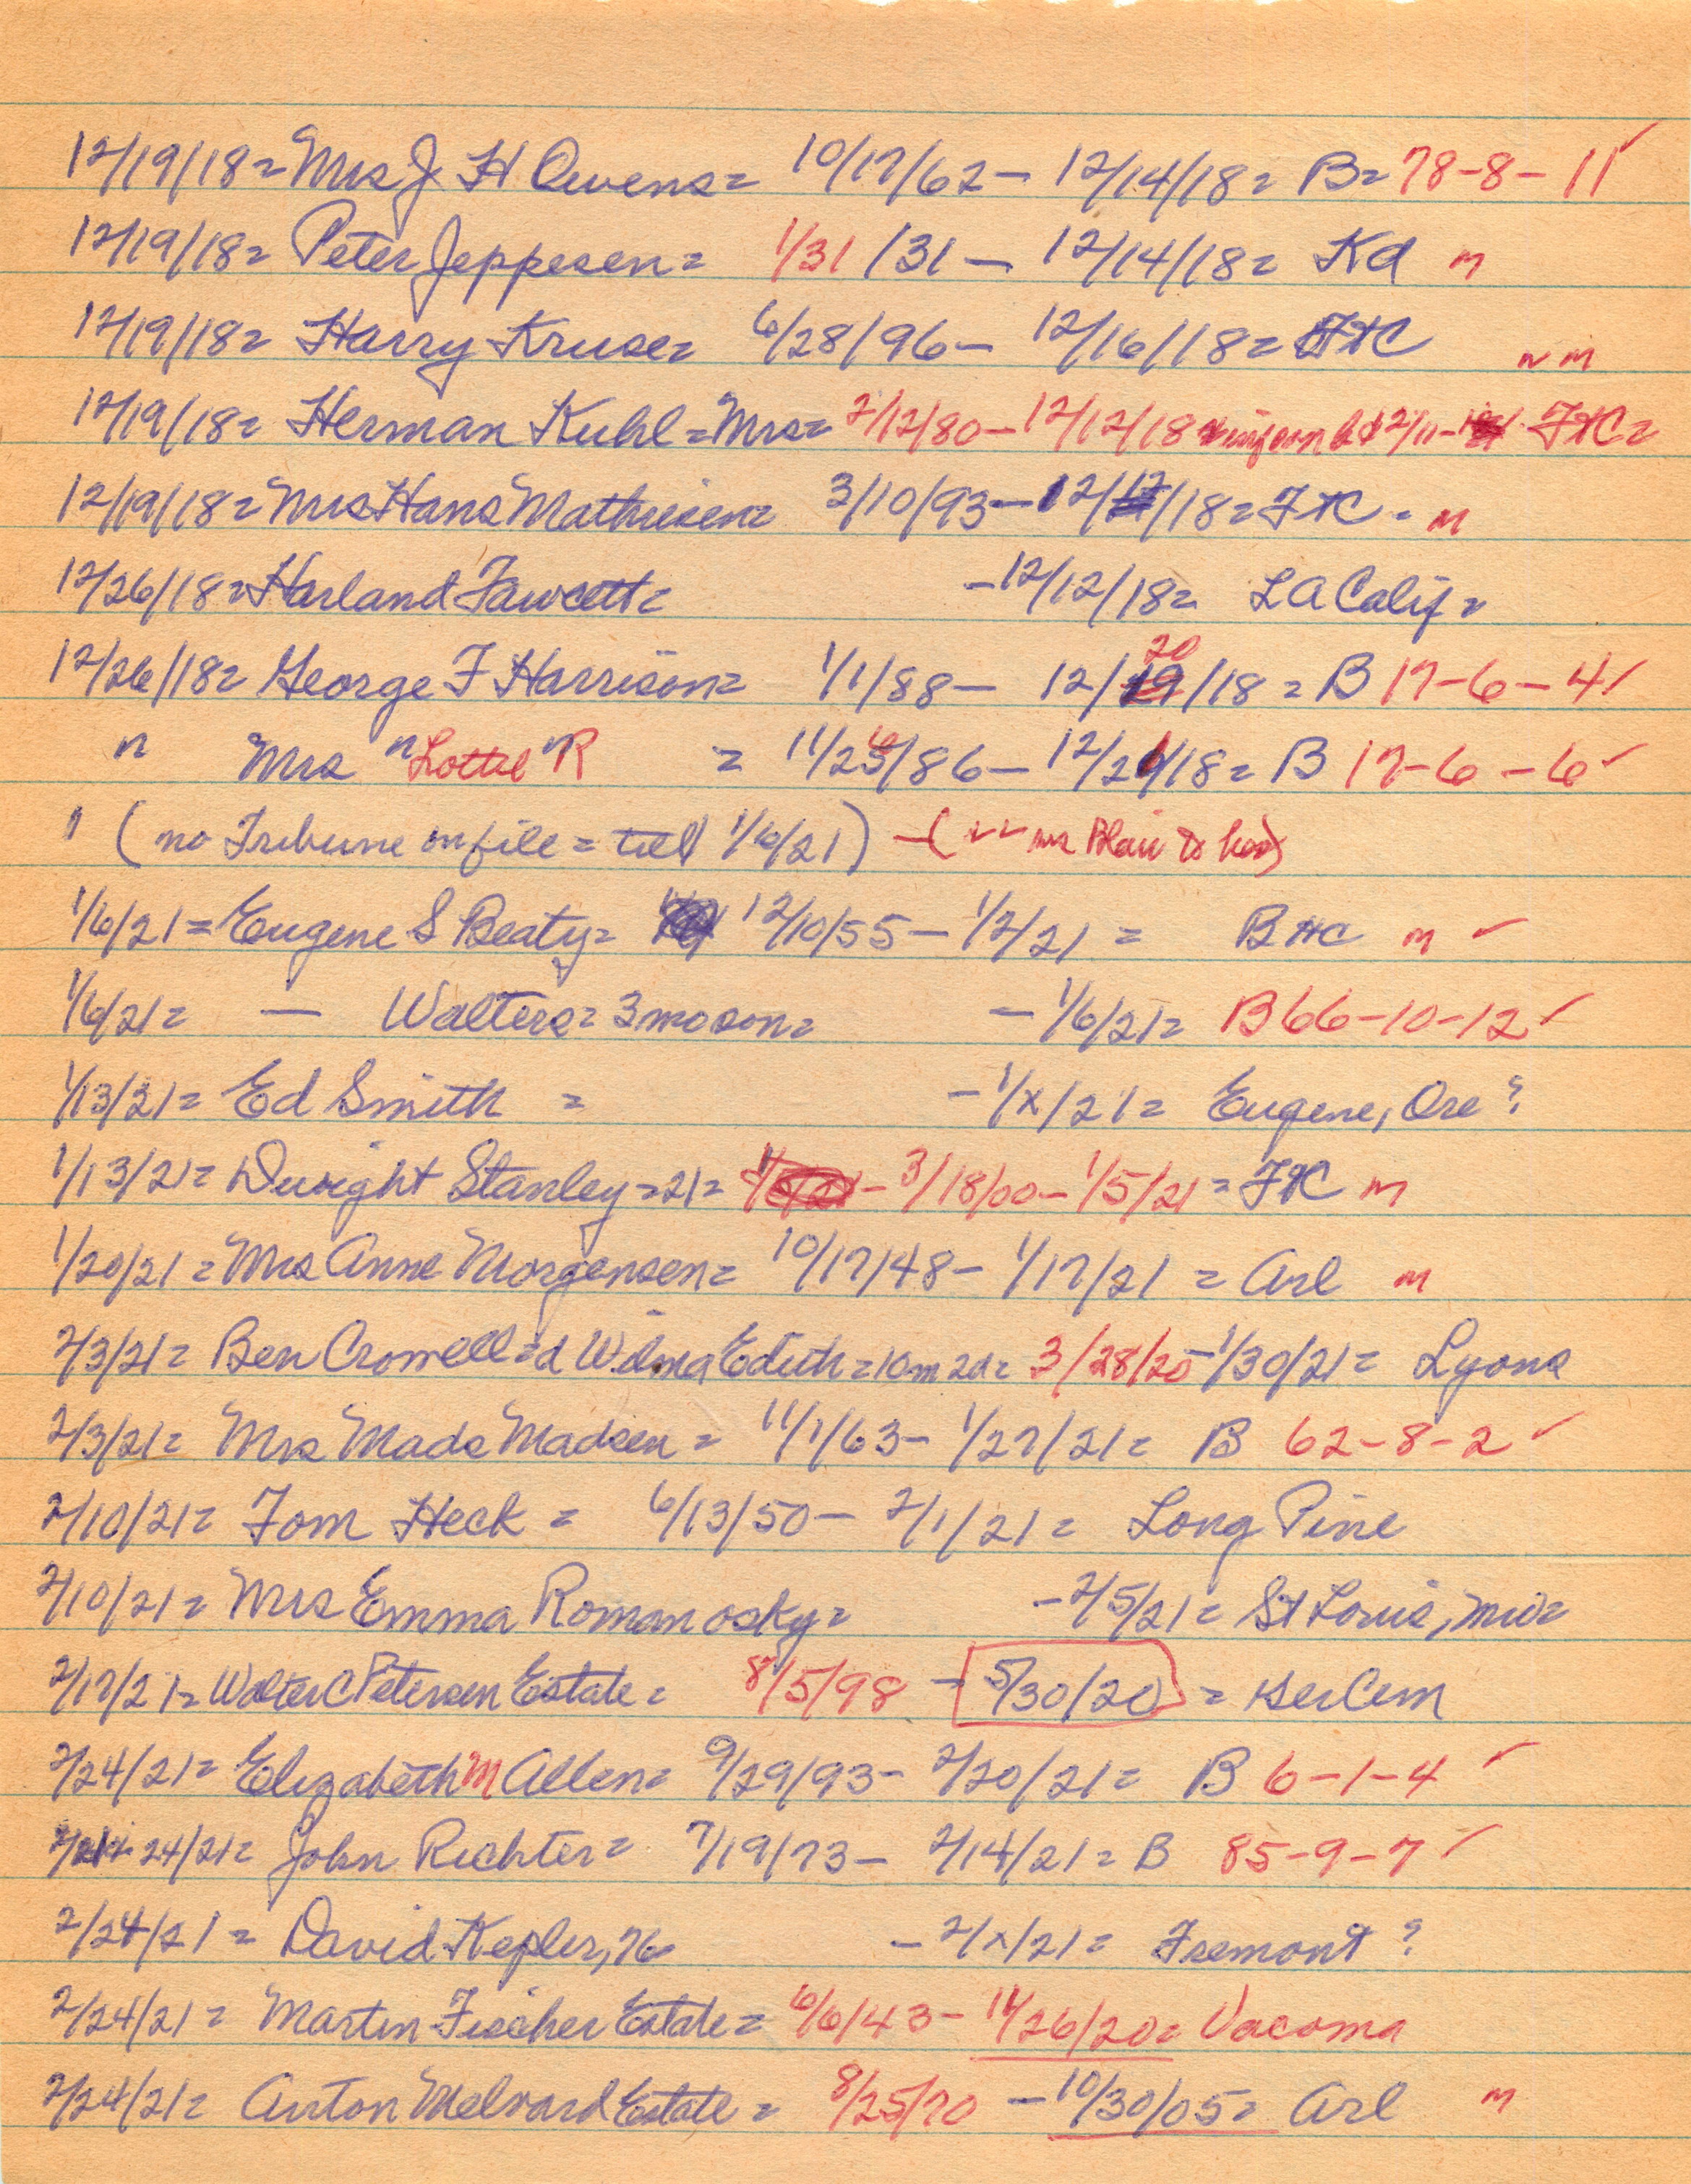 12/19/18= Mrs J H Owens= 10/17/62- 12/14/18= B= 78-8-11 ✓
12/19/18= Peter Jeppesen= 1/31/31- 12/14/18= Kd m
12/19/18= Harry Kruse= 6/28/96- 12/16/18= FtC n m
12/19/18= Herman Kuhl=Mrs= 2/12/80-12/12/18 FtC=
12/19/18= Mrs Hans Mathiesen= 3/10/93- 12/17/18= FtC - m
12/26/18= Harland Fawcett= -12/12/18= LA Calif=
12/26/18= George F Harrison= 1/1/88- 12/20/18= B 17-6-4 ✓
" Mrs " Lottie " R = 11/26/86- 12/21/18= B 17-6-6 ✓
" (no Tribune on file = till 1/6/21) - ( ✓✓ Blair
1/6/21= Eugene S Beaty= 12/10/55- 1/2/21= B m ✓
1/6/21= - Walters= 3 mo son= -1/6/21= B 66-10-12 ✓
1/13/21= Ed Smith = -1/x/21= Eugene, Ore?
1/13/21= Dwight Stanley=21= - 3/18/00- 1/5/21= FtC m
1/20/21= Mrs Anne Morgensen= 10/17/48- 1/17/21= Arl m
2/3/21= Ben Crowell=d Wilma Edith=10m 2d= 3/28/20-1/30/21= Lyons
2/3/21= Mrs Mads Madsen= 11/1/63- 1/27/21= B 62-8-2 ✓
2/10/21= Tom Heck= 6/13/50- 2/1/21= Long Pine
2/10/21= Mrs Emma Romanosky= -2/5/21= St Louis, Mo=
2/17/21= Walter C Petersen Estate= 8/5/98 - 5/30/20 = Cem
2/24/21= Elizabeth M Allen= 9/29/93- 2/20/21= B 6-1-4 ✓
24/21= John Richter= 7/19/73- 2/14/21= B 85-9-7 ✓
2/24/21= David Kepler, 76 -2/x/21= Fremont?
2/24/21= Martin Fischer Estate= 6/6/43- 11/26/20= Vacoma
2/24/21= Anton Melvard Estate= 8/25/70 - 10/30/05= Arl m